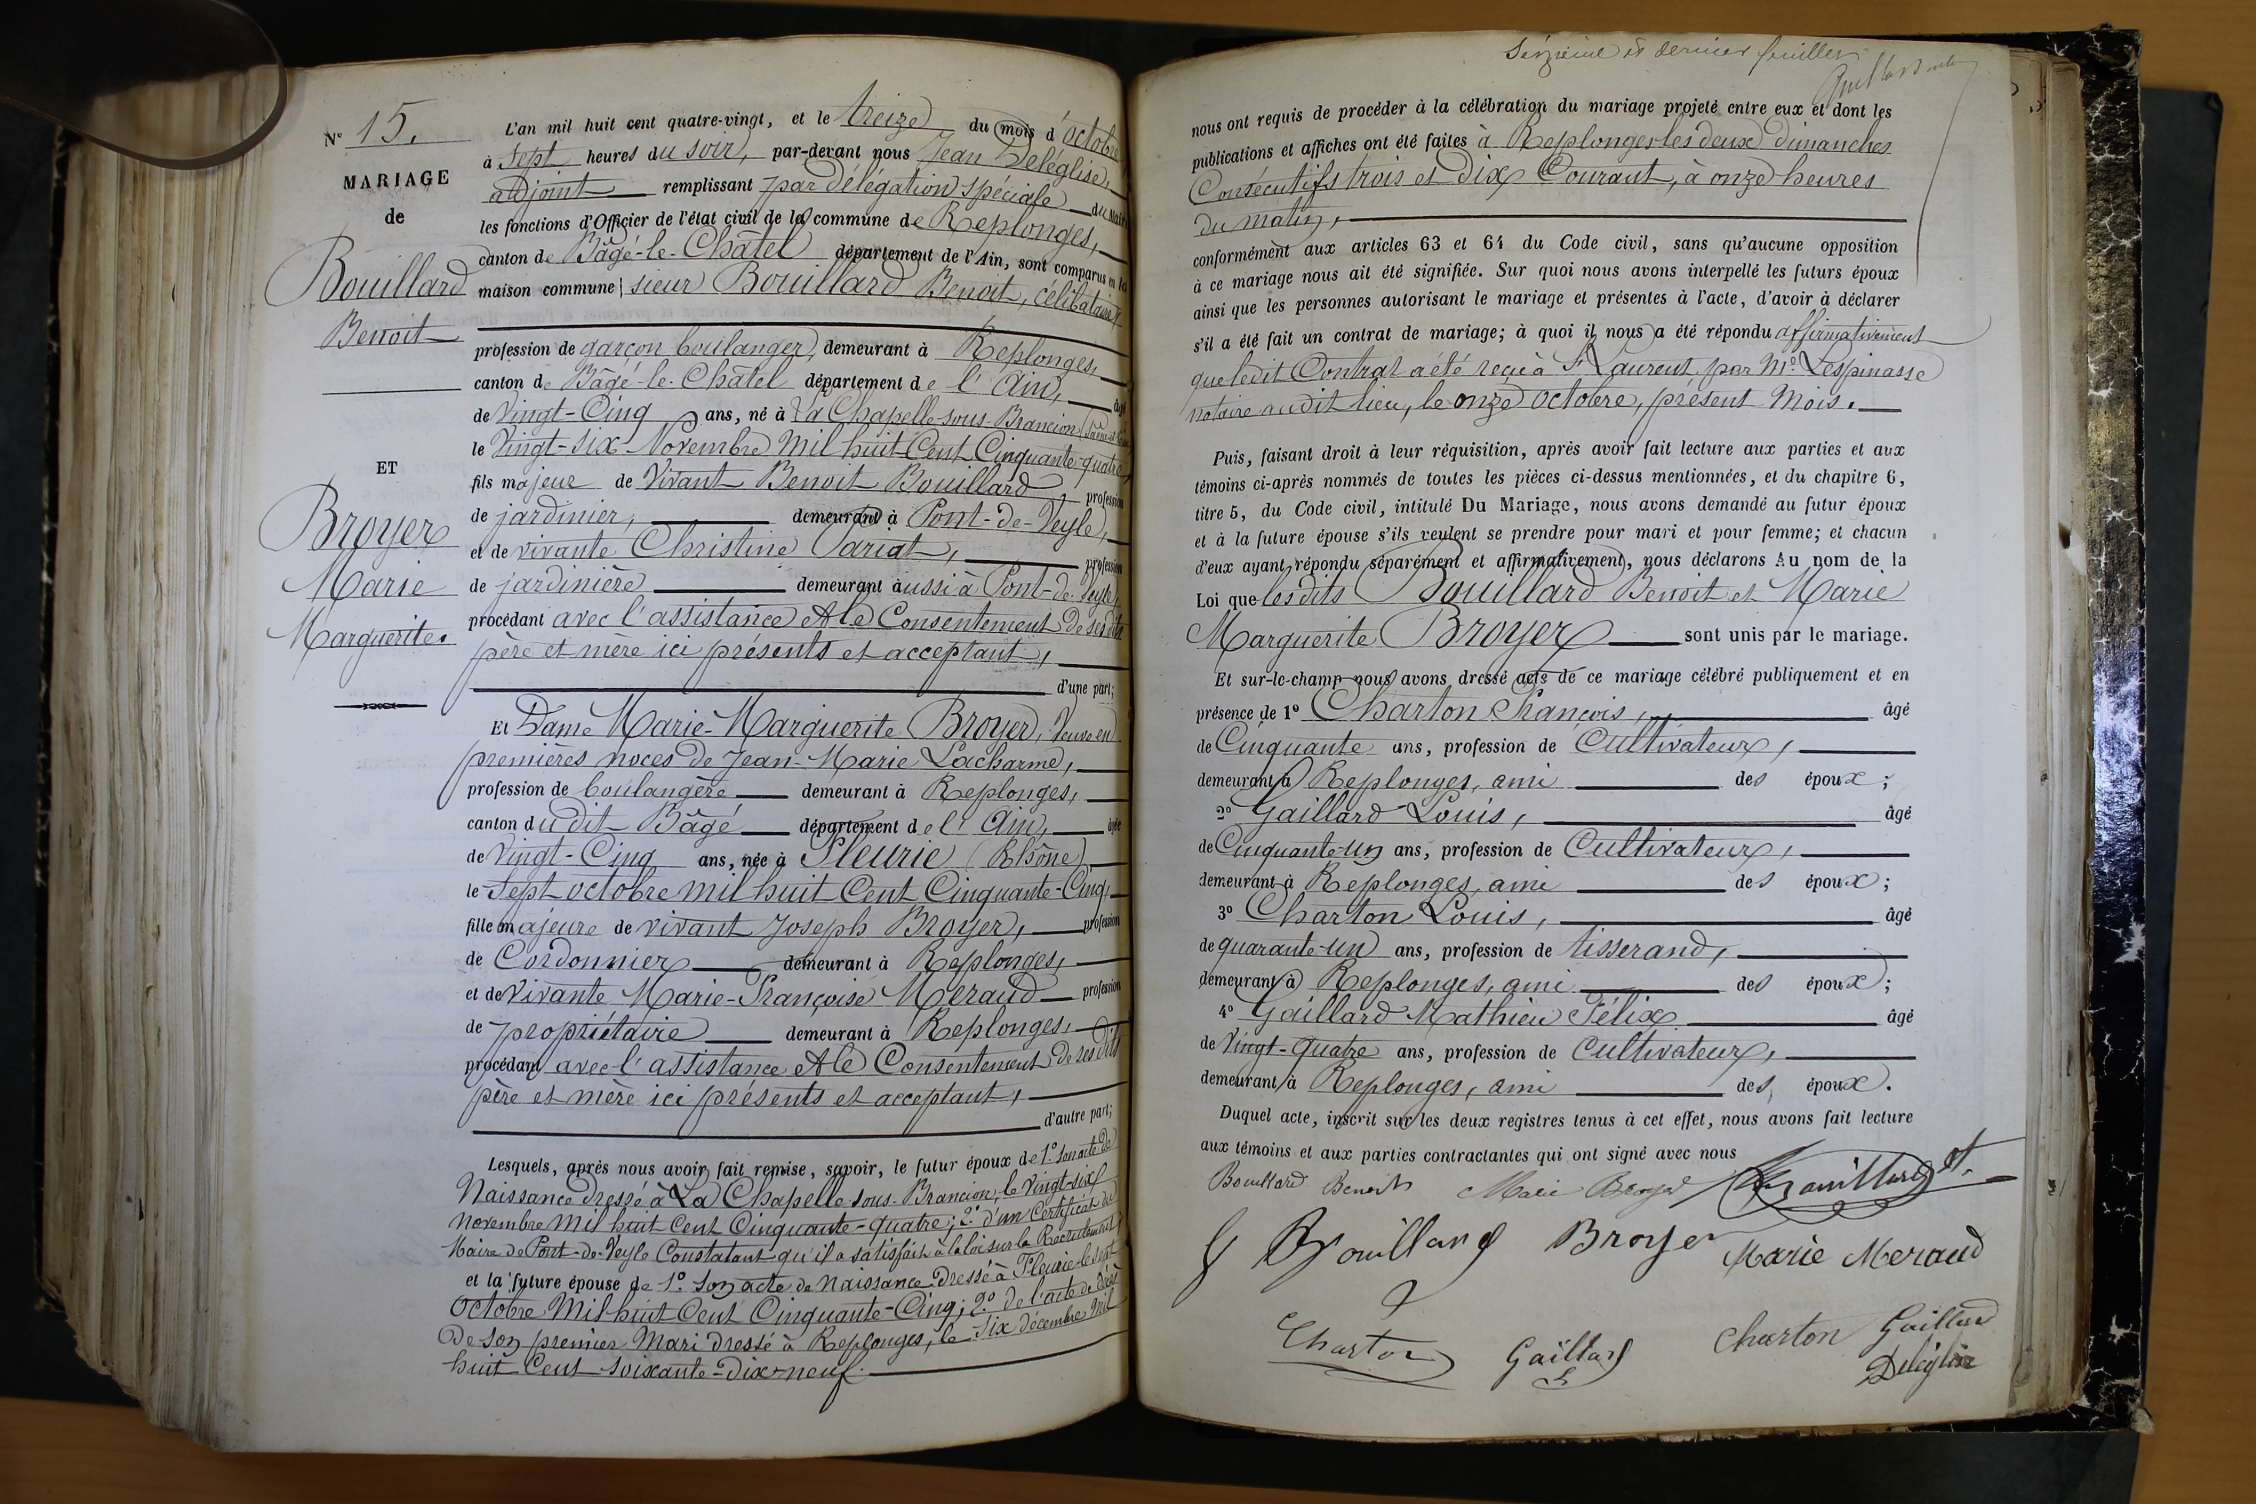 N° 15.
MARIAGE
de
Bouillard
Benoit
ET
Broyer
Marie
Marguerite.
L'an mil huit cent quatre-vingt, et le treize du mois d'octobre
à sept heures du soir, par-devant nous Jean Deléglise,
adjoint remplissant par délégation spéciale du Maire
les fonctions d'Officier de l'état civil de la commune de Replonges,
canton de Bâgé-le-Châtel département de l'Ain, sont comparus en la
maison commune sieur Bouillard Benoit, célibataire
profession de garçon boulanger, demeurant à Replonges,
canton de Bâgé-le-Châtel département de l'Ain, âgé
de Vingt-Cinq ans, né à La Chapelle-sous-Brancion
le Vingt-six Novembre mil huit Cent Cinquante-quatre,
fils majeur de Vivant Benoit Bouillard profession
de jardinier, demeurant à Pont-de-Veyle,
et de vivante Christine Variat, profession
de jardinière demeurant aussi à Pont-de-Veyle,
procédant avec l'assistance & le Consentement de ses dits
père et mère ici présents et acceptant,
d'une part;
Et Dame Marie-Marguerite Broyer, Veuve en
premières noces de Jean-Marie Lacharme,
profession de boulangère demeurant à Replonges,
canton dudit Bâgé département de l'Ain, âgée
de Vingt-Cinq ans, née à Fleurie (Rhône)
le Sept octobre mil huit Cent Cinquante-Cinq,
fille majeure de vivant Joseph Broyer, profession
de Cordonnier demeurant à Replonges,
et de Vivante Marie-Françoise Meraud profession
de propriétaire demeurant à Replonges,
procédant avec l'assistance & le Consentement de ses dits
père et mère ici présents et acceptant,
d'autre part;
Lesquels, après nous avoir fait remise, savoir, le futur époux de 1° son acte de
Naissance dressé à La Chapelle-sous-Brancion, le vingt-six
Novembre mil huit Cent Cinquante-quatre; 2° d'un Certificat du
Maire de Pont-de-Veyle Constatant qu'il a satisfait à la loi sur le Recrutement
et la future épouse de 1° Son acte de Naissance dressé à Fleurie le sept
Octobre Mil huit Cent Cinquante-Cinq; 2° de l'acte de décès
de son premier Mari dressé à Replonges, le Six décembre Mil
huit Cent soixante-Dix-neuf.
Seizième et dernier feuillet
nous ont requis de procéder à la célébration du mariage projeté entre eux et dont les
publications et affiches ont été faites à Replonges les deux dimanches
Consécutifs trois et Dix Courant, à onze heures
du matin,
conformément aux articles 63 et 64 du Code civil, sans qu'aucune opposition
à ce mariage nous ait été signifiée. Sur quoi nous avons interpellé les futurs époux
ainsi que les personnes autorisant le mariage et présentes à l'acte, d'avoir à déclarer
s'il a été fait un contrat de mariage; à quoi il nous a été répondu affirmativement
que ledit Contrat a été reçu à St Laurent par Me Lespinasse
notaire audit lieu, le onze octobre, présent Mois.
Puis, faisant droit à leur réquisition, après avoir fait lecture aux parties et aux
témoins ci-après nommés de toutes les pièces ci-dessus mentionnées, et du chapitre 6,
titre 5, du Code civil, intitulé Du Mariage, nous avons demandé au futur époux
et à la future épouse s'ils veulent se prendre pour mari et pour femme; et chacun
d'eux ayant répondu séparément et affirmativement, nous déclarons Au nom de la
Loi que lesdits Bouillard Benoit et Marie
Marguerite Broyer sont unis par le mariage.
Et sur-le-champ nous avons dressé acte de ce mariage célébré publiquement et en
présence de 1° Charton François, âgé
de Cinquante ans, profession de Cultivateur,
demeurant à Replonges, ami des époux;
2° Gaillard Louis, âgé
de Cinquante-un ans, profession de Cultivateur,
demeurant à Replonges, ami des époux;
3° Charton Louis, âgé
de quarante-un ans, profession de tisserand,
demeurant à Replonges, ami des époux;
4° Gaillard Mathieu Félix âgé
de Vingt-quatre ans, profession de Cultivateur,
demeurant à Replonges, ami des époux.
Duquel acte, inscrit sur les deux registres tenus à cet effet, nous avons fait lecture
aux témoins et aux parties contractantes qui ont signé avec nous
Bouillard Benoit Marie Broyer
Bouillard Broyer Marie Meraud
Charton Gaillard Charton Gaillard
Deléglise